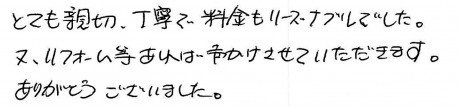 とても親切、丁寧で料金もリーズナブルでした。
又、リフォーム等あれば声かけさせていただきます。
ありがとうございました。